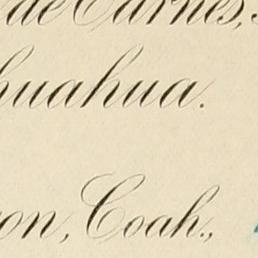 de Carnes,
huahua.
on, Coah.,